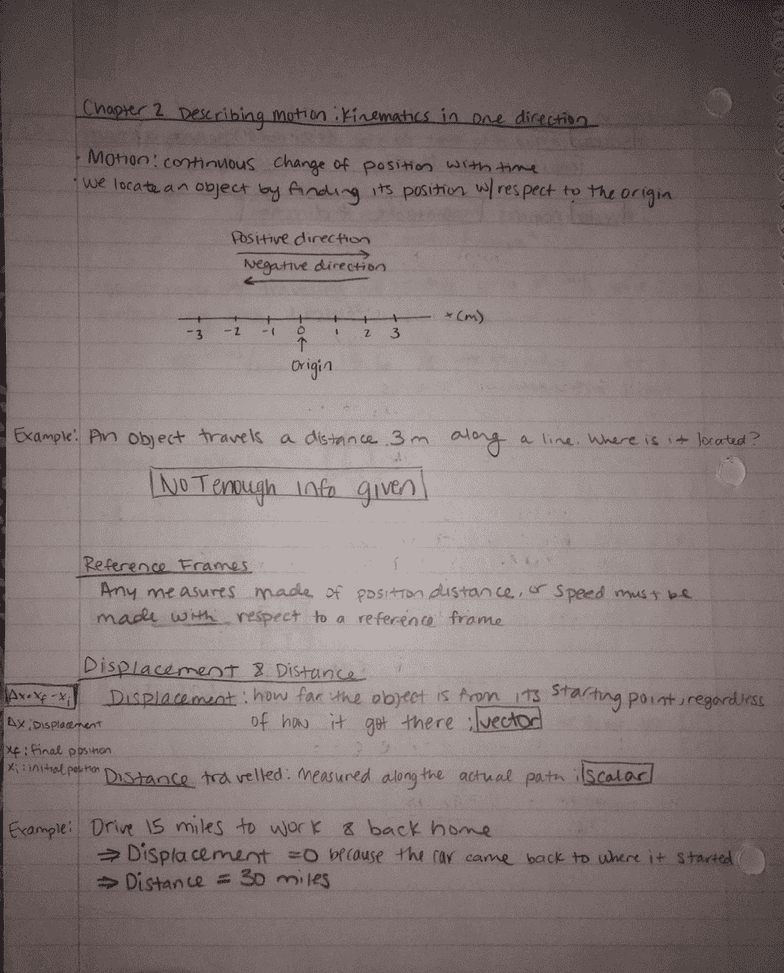 Chapter 2 Describing Motion: Kinematics in one direction
· Motion: continuous change of position with time
· We locate an object by finding its position w/ respect to the origin
Positive direction
Negative direction
x (m)
-3 -2 -1 0 1 2 3
origin
Example: An object travels a distance 3 m along a line. Where is it located?
NOT enough info given
Reference Frames
Any measures made of position distance, or speed must be
made with respect to a reference frame
Displacement & Distance
Δx=xf-xi Displacement: how far the object is from its starting point, regardless
Δx: Displacement of how it got there; vector
xf: final position
xi: initial position Distance travelled: measured along the actual path; scalar
Example: Drive 15 miles to work & back home
⇒ Displacement = 0 because the car came back to where it started
⇒ Distance = 30 miles